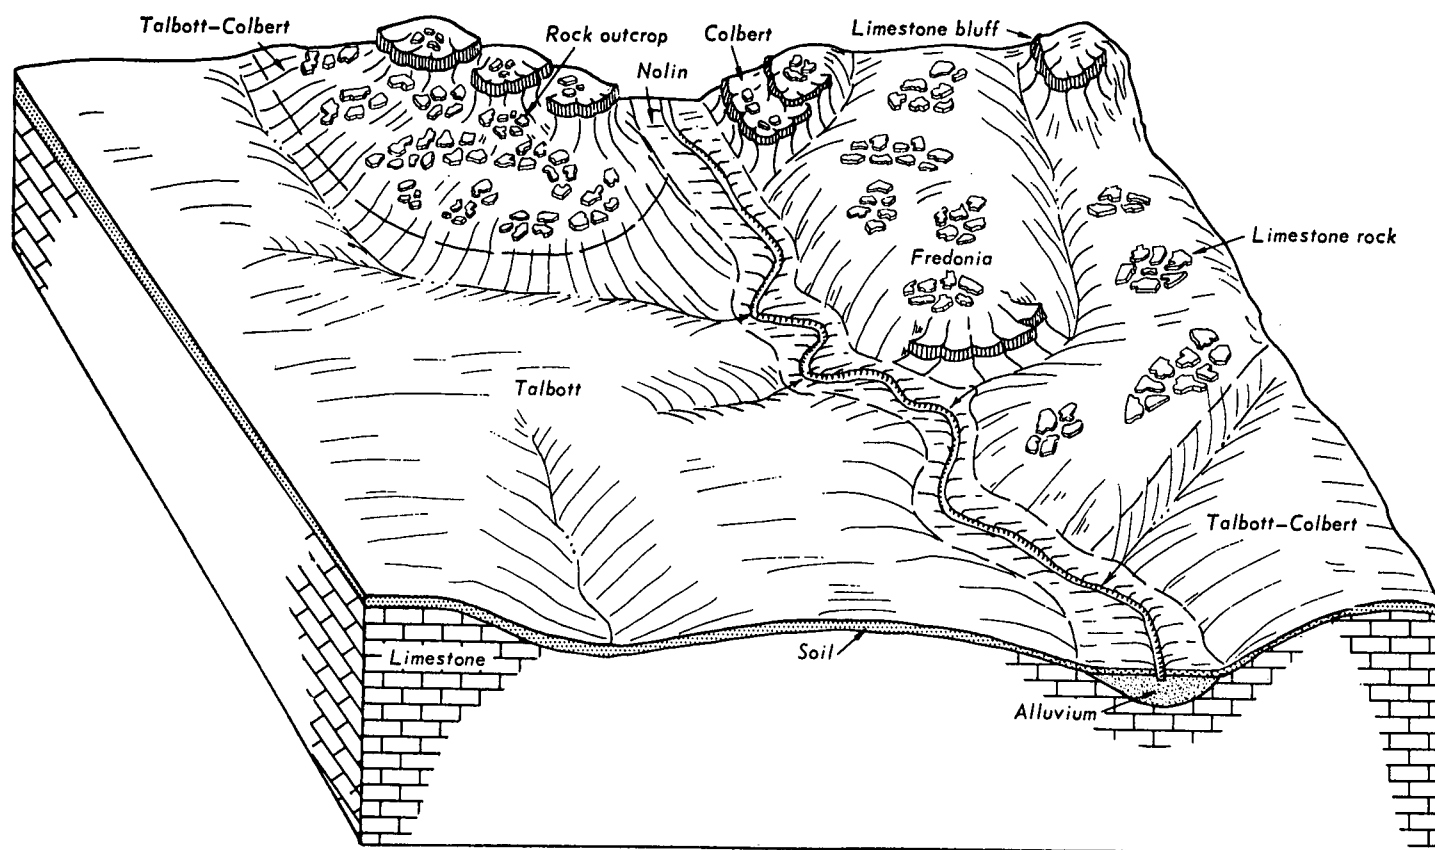 Talbott-Colbert
Rock outcrop
Colbert
Limestone bluff
Nolin
Limestone rock
Fredonia
Talbott
Talbott-Colbert
Limestone
Soil
Alluvium